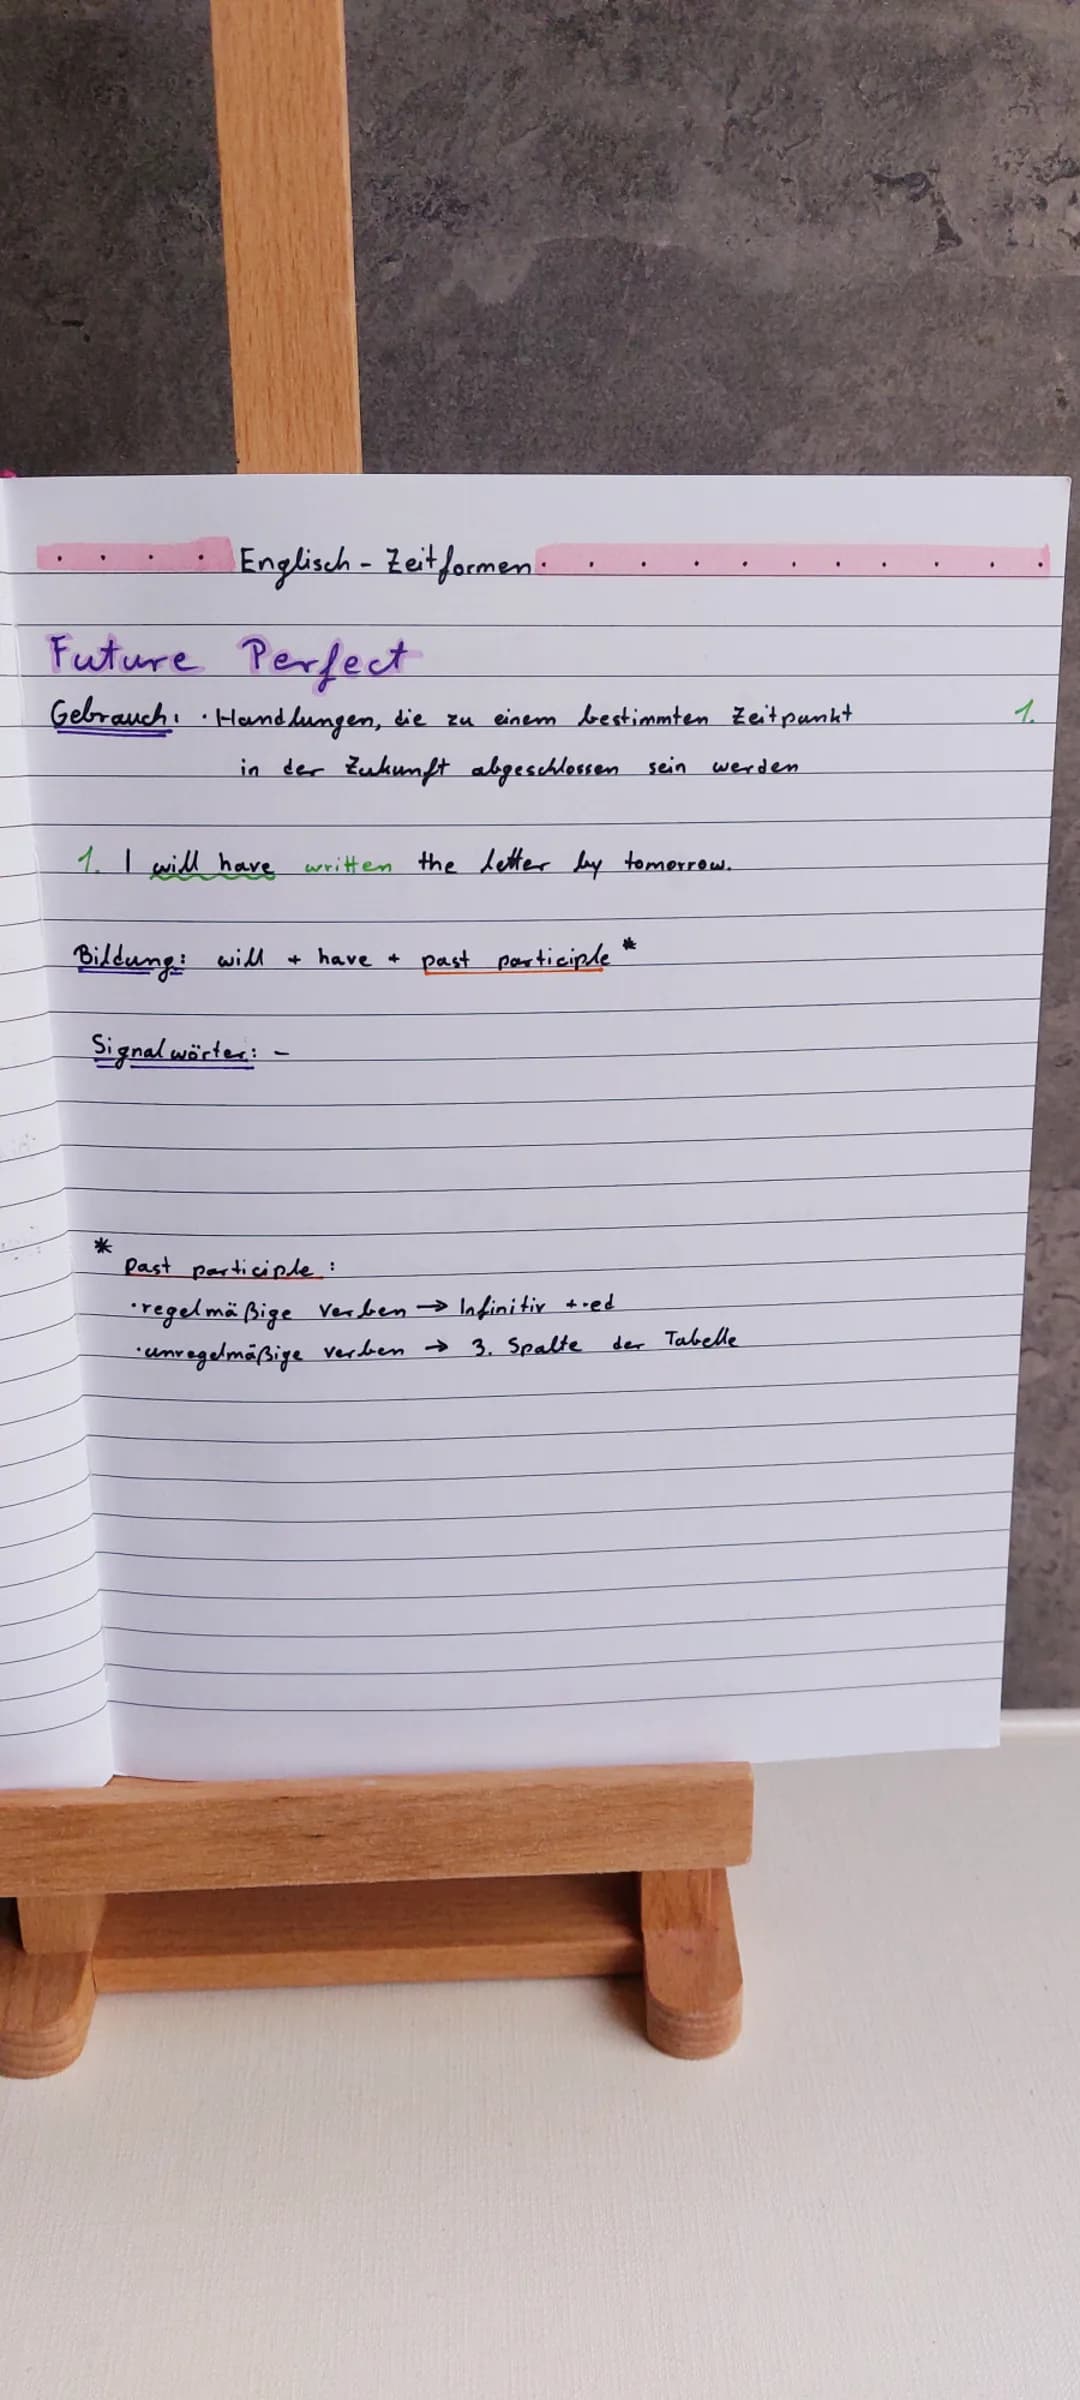 Englisch - Zeitformen
Future Perfect
Gebrauch: · Handlungen, die zu einem bestimmten Zeitpunkt 1.
in der Zukunft abgeschlossen sein werden
1. I will have written the letter by tomorrow.
Bildung: will + have + past participle *
Signalwörter: -
* Past participle :
· regelmäßige Verben → Infinitiv + -ed
· unregelmäßige Verben → 3. Spalte der Tabelle